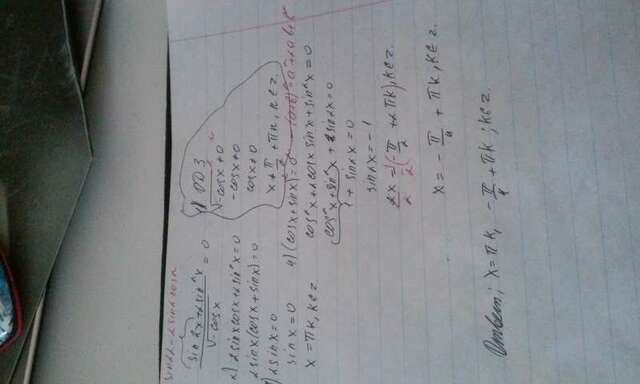 sin2x = 2sinx cosx
(sin2x + 2sin²x)/√-cosx = 0
1) ОДЗ
√-cosx ≠ 0
-cosx ≠ 0
cosx ≠ 0
x ≠ π/2 + πk, k∈z.
2) 2sinxcosx+2sin²x=0
2sinx(cosx+sinx)=0
3) 2sinx=0
sinx=0
x=πk, k∈z
4) (cosx+sinx)²=0² (a+b)²=a²+2ab+b²
cos²x+2cosx sinx+sin²x=0
cos²x+sin²x + 2sin2x=0
1 + sin2x=0
sin2x=-1
2x/2 = 1/2(-π/2 + 2πk), k∈z.
x = -π/4 + πk, k∈z.
Ответ: x=πk, -π/4 + πk; k∈z.